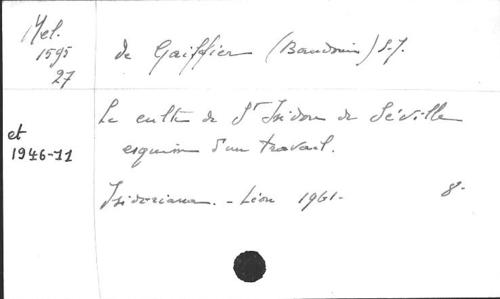 Mel.
1595
27
de Gaiffier (Baudouin) S.J.
et
1946-11
Le culte de St Isidore de Séville
esquisse d'un travail.
Isidoriana. - Léon 1961-
8-